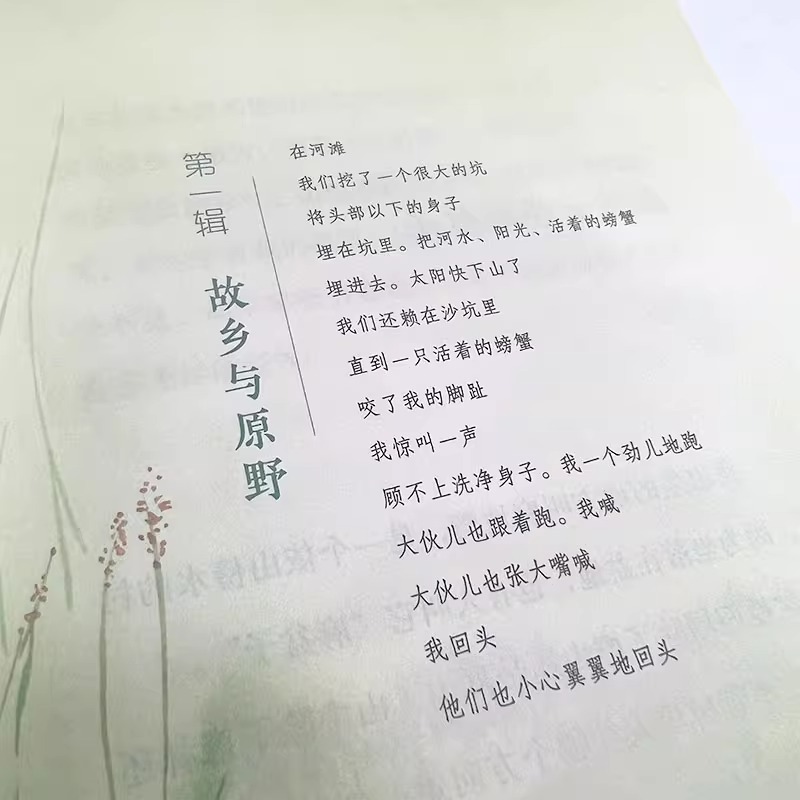 第一辑
故乡与原野
在河滩
我们挖了一个很大的坑
将头部以下的身子
埋在坑里。把河水、阳光、活着的螃蟹
埋进去。太阳快下山了
我们还赖在沙坑里
直到一只活着的螃蟹
咬了我的脚趾
我惊叫一声
顾不上洗净身子。我一个劲儿地跑
大伙儿也跟着跑。我喊
大伙儿也张大嘴喊
我回头
他们也小心翼翼地回头